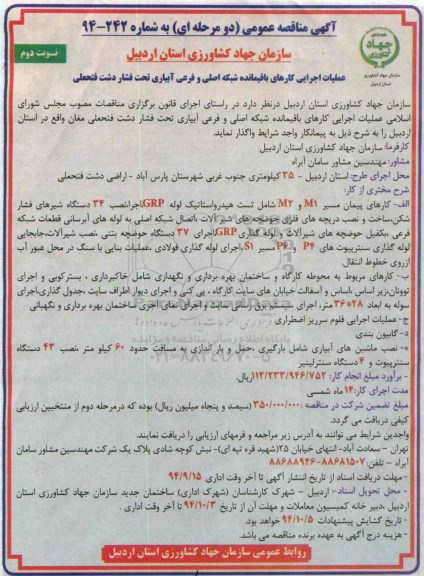 آگهی مناقصه عمومی (دو مرحله ای) به شماره ۲۴۲-۹۴
سازمان جهاد کشاورزی استان اردبیل
نوبت دوم
جهاد کشاورزی
سازمان جهاد کشاورزی
استان اردبیل
عملیات اجرایی کارهای باقیمانده شبکه اصلی و فرعی آبیاری تحت فشار دشت فتحعلی
سازمان جهاد کشاورزی استان اردبیل درنظر دارد در راستای اجرای قانون برگزاری مناقصات مصوب مجلس شورای
اسلامی عملیات اجرایی کارهای باقیمانده شبکه اصلی و فرعی آبیاری تحت فشار دشت فتحعلی مغان واقع در استان
اردبیل را به شرح ذیل به پیمانکار واجد شرایط واگذار نماید.
کارفرما: سازمان جهاد کشاورزی استان اردبیل
مشاور: مهندسین مشاور سامان آبراه
محل اجرای طرح: استان اردبیل - ۳۵ کیلومتری جنوب غربی شهرستان پارس آباد - اراضی دشت فتحعلی
شرح مختصری از کار:
الف- کارهای پیمان مسیر M۱ و M۲ شامل تست هیدرواستاتیک لوله GRP، اجرا، نصب ۳۴ دستگاه شیرهای فشار
شکن، ساخت و نصب دریچه های فلزی حوضچه های شیرآلات، اتصال شبکه اصلی به لوله های آبرسانی قطعات شبکه
فرعی، تکمیل حوضچه های شیرآلات و لوله گذاری GRP، اجرای ۳۷ دستگاه حوضچه بتنی، نصب شیرآلات، جابجایی
لوله گذاری سنترپیوت های P۴ و P۶ مسیر S۱، اجرای لوله گذاری فولادی، عملیات بنایی با سنگ در محل عبور آب
ازروی خطوط انتقال.
ب- کارهای مربوط به محوطه کارگاه و ساختمان بهره برداری و نگهداری شامل خاکبرداری، بسترکوبی و اجرای
توونان، زیر اساس، اساس و آسفالت خیابان های سایت کارگاه، پی کنی و اجرای دیوار اطراف سایت، جدول گذاری، اجرای
سوله به ابعاد ۲۸×۳۶ متر، اجرای سیستم برق رسانی سایت و اجرای نمای آجری ساختمان بهره برداری و نگهبانی
ج- عملیات اجرایی فلوم سرریز اضطراری
د- گابیون بندی
ه- نصب ماشین های آبیاری شامل بارگیری، حمل و بار اندازی به مسافت حدود ۶۰ کیلو متر، نصب ۴۳ دستگاه
سنترپیوت و ۴ دستگاه سنترلینیر
- برآورد مبلغ انجام کار: ۱۱۲/۲۳۳/۹۴۶/۷۵۲ ریال.
مدت اجرای کار: ۱۴ ماه شمسی
مبلغ تضمین شرکت در مناقصه: ۳۵۰/۰۰۰/۰۰۰ (سیصد و پنجاه میلیون ریال) بوده که درمرحله دوم از منتخبین ارزیابی
کیفی دریافت می گردد.
واجدین شرایط می توانند به آدرس زیر مراجعه و فرمهای ارزیابی را دریافت نمایند.
تهران - سعادت آباد- انتهای خیابان ۲۵ (شهید قره تپه ای)- نبش کوچه شادی پلاک یک شرکت مهندسین مشاور سامان
آبراه - تلفن: ۸۸۶۸۱۵۰۷-۸۸۶۸۸۹۴۶
- مهلت دریافت اسناد از تاریخ انتشار آگهی تا آخر وقت اداری ۹۴/۹/۱۵
- محل تحویل اسناد: اردبیل - شهرک کارشناسان (شهرک اداری) ساختمان جدید سازمان جهاد کشاورزی استان
اردبیل، دبیر خانه کمیسیون معاملات و مهلت آن از تاریخ ۹۴/۱۰/۳ تا آخر وقت اداری.
- تاریخ گشایش پیشنهادات ۹۴/۱۰/۵ خواهد بود.
- هزینه درج آگهی به عهده برنده مناقصه می باشد.
روابط عمومی سازمان جهاد کشاورزی استان اردبیل